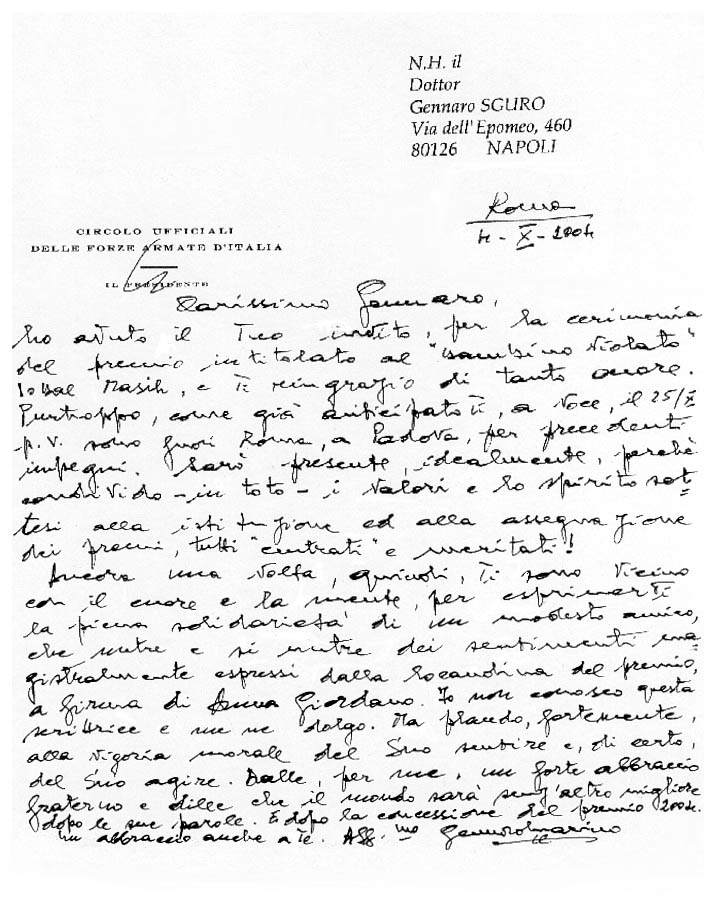 N.H. il
Dottor
Gennaro SGURO
Via dell'Epomeo, 460
80126 NAPOLI
Roma
4 - X - 2004
CIRCOLO UFFICIALI
DELLE FORZE ARMATE D'ITALIA
IL PRESIDENTE
Carissimo Gennaro,
ho avuto il Tuo invito, per la cerimonia
del premio intitolato al "bambino violato"
Iqbal Masih, e Ti ringrazio di tanto onore.
Purtroppo, come già anticipatoTi, a voce, il 25/X
p.v. sono fuori Roma, a Padova, per precedenti
impegni. Sarò presente, idealmente, perché
condivido - in toto - i valori e lo spirito sot-
tesi alla istituzione ed alla assegnazione
dei premi, tutti "centrati" e meritati!
Ancora una volta, quindi, Ti sono vicino
con il cuore e la mente, per esprimerTi
la piena solidarietà di un modesto amico,
che nutre e si nutre dei sentimenti ma-
gistralmente espressi dalla locandina del premio,
a firma di Anna Giordano. Io non conosco questa
scrittrice e me ne dolgo. Ma plaudo, fortemente,
alla vigoria morale del Suo sentire e, di certo,
del Suo agire. Dalle, per me, un forte abbraccio
fraterno e dille che il mondo sarà senz'altro migliore
dopo le sue parole. E dopo la concessione del premio 2004.
Un abbraccio anche a Te. Aff.mo